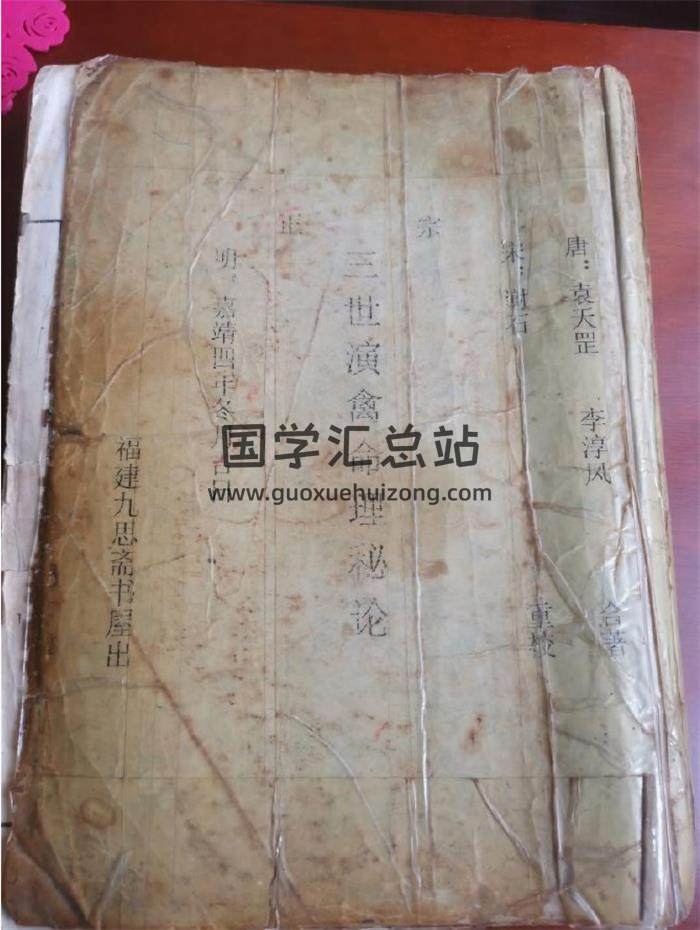 唐：袁天罡 李淳风 合著
宋：谢石 重校
正 宗
三世演禽命理秘论
明：嘉靖四年冬
福建九思斋书屋出
国学汇总站
www.guoxuehuizong.com